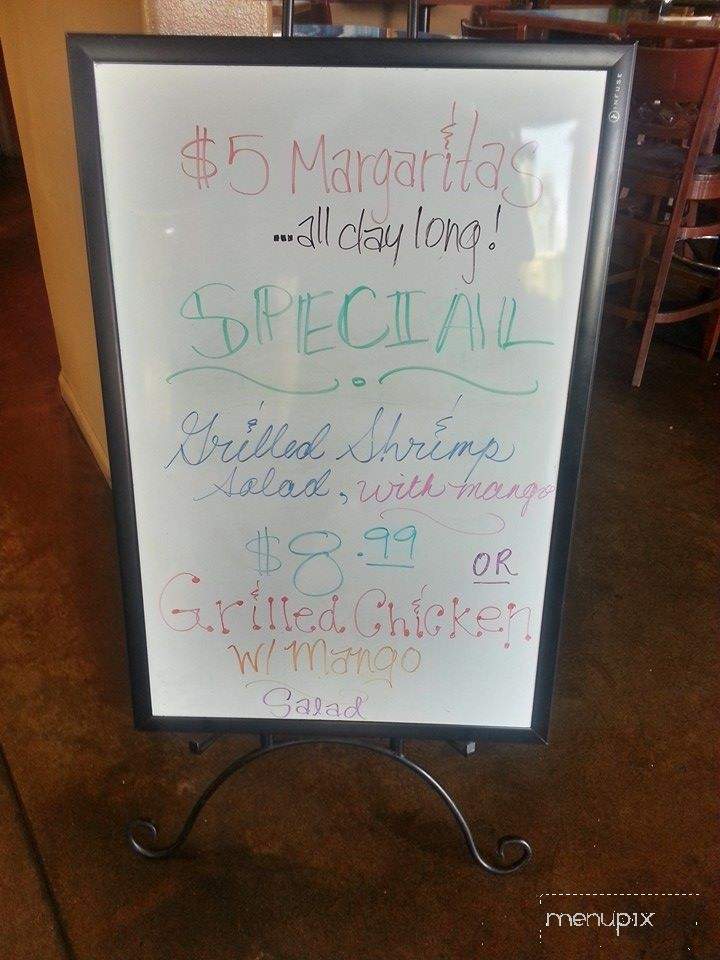 INFUSE
$5 Margaritas
...all day long!
SPECIAL
Grilled Shrimp
Salad, with mango
$8.99
OR
Grilled Chicken
W/ Mango
Salad
menupix